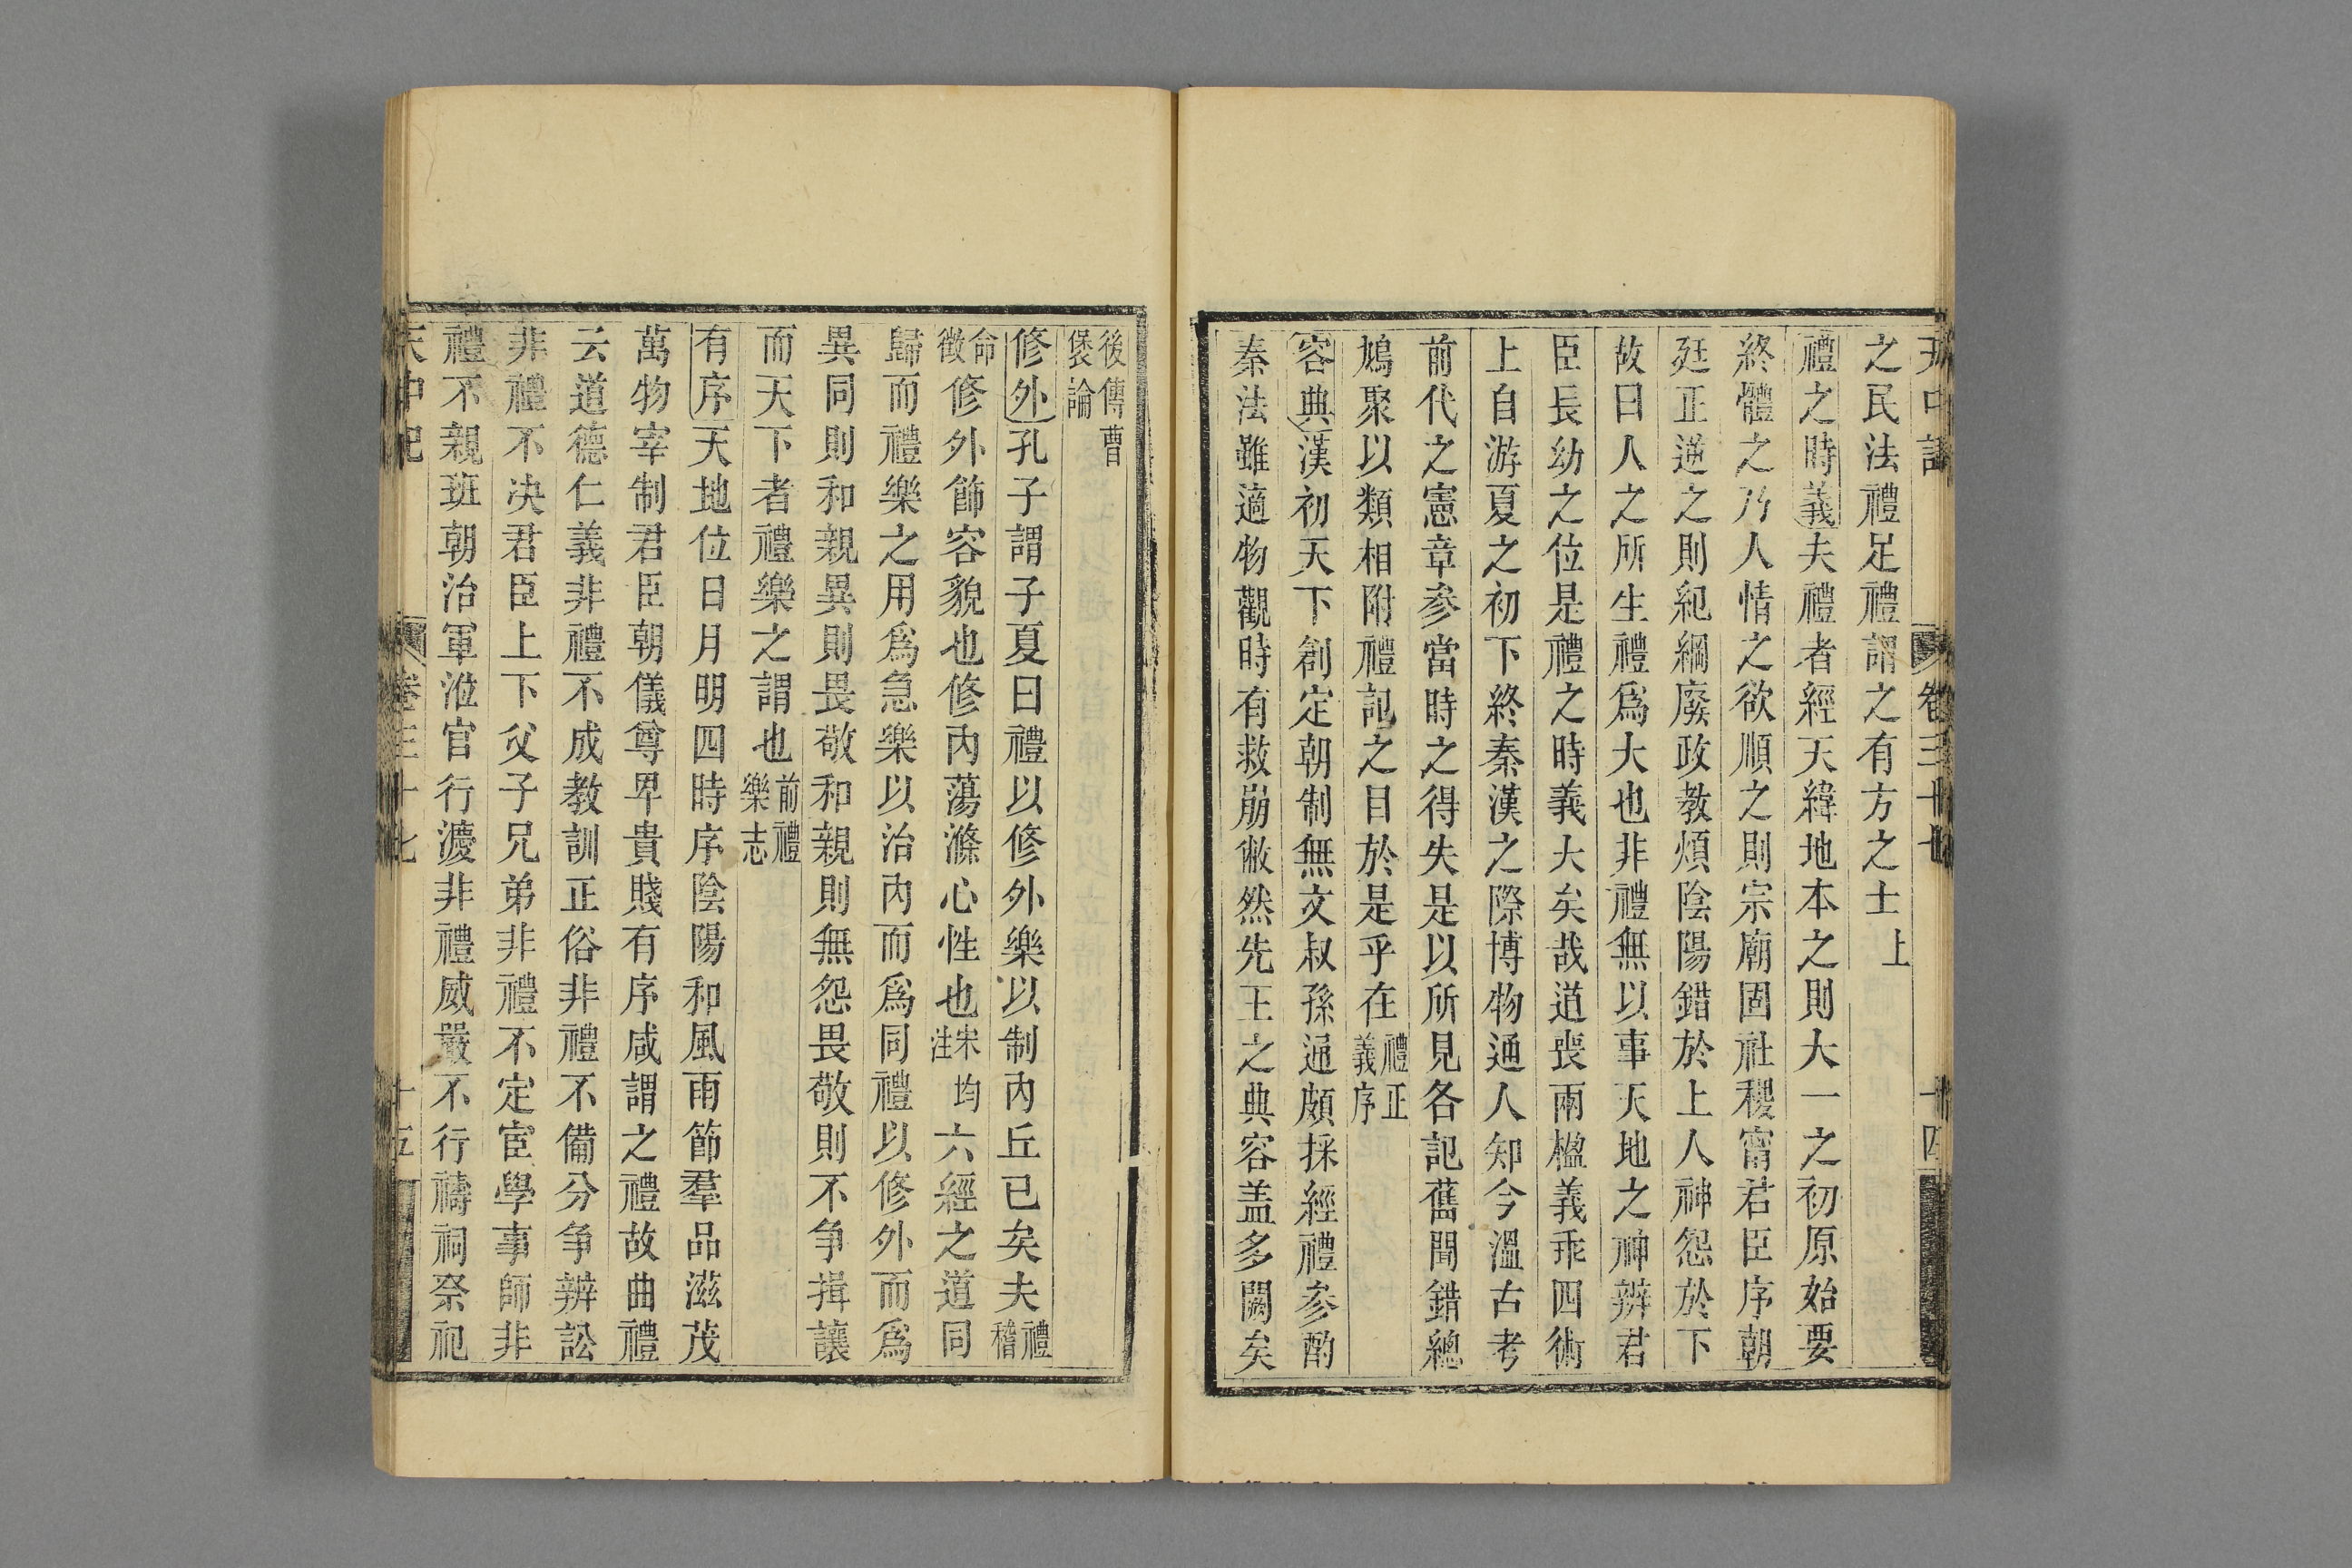 天中記
卷三十七
十四
之民法禮足禮謂之有方之士上
禮之時義夫禮者經天緯地本之則大一之初原始要
終體之乃人情之欲順之則宗廟固社稷甯君臣序朝
廷正逆之則紀綱廢政教煩陰陽錯於上人神怨於下
故曰人之所生禮爲大也非禮無以事天地之神辨君
臣長幼之位是禮之時義大矣哉道喪兩楹義乖四術
上自游夏之初下終秦漢之際博物通人知今溫古考
前代之憲章參當時之得失是以所見各記舊聞錯總
鳩聚以類相附禮記之目於是乎在禮正義序
容典漢初天下創定朝制無文叔孫通頗採經禮參酌
秦法雖適物觀時有救崩敝然先王之典容盖多闕矣
後傳曹褒論
修外孔子謂子夏曰禮以修外樂以制內丘已矣夫禮稽
命徵修外飾容貌也修內蕩滌心性也宋均注六經之道同
歸而禮樂之用爲急樂以治內而爲同禮以修外而爲
異同則和親異則畏敬和親則無怨畏敬則不争揖讓
而天下者禮樂之謂也前禮樂志
有序天地位日月明四時序陰陽和風雨節羣品滋茂
萬物宰制君臣朝儀尊卑貴賤有序咸謂之禮故曲禮
云道德仁義非禮不成教訓正俗非禮不備分争辨訟
非禮不决君臣上下父子兄弟非禮不定宦學事師非
禮不親班朝治軍涖官行灋非禮威嚴不行禱祠祭祀
天中記
卷三十七
十五